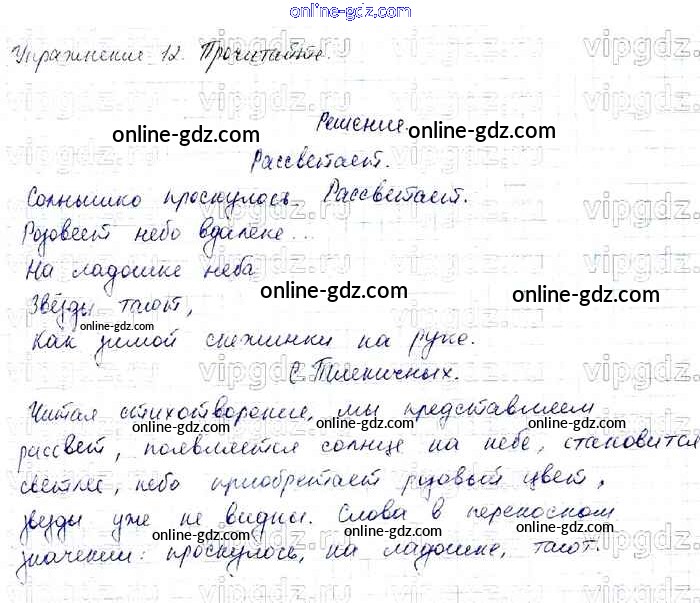 online-gdz.com
Упражнение 12. Прочитайте.
Решение.
online-gdz.com online-gdz.com
Рассветает.
Солнышко проснулось. Рассветает.
Розовеет небо вдалеке...
На ладошке неба
online-gdz.com online-gdz.com
Звёзды тают,
online-gdz.com
Как зимой снежинки на руке.
online-gdz.com
С. Пшеничных.
Читая стихотворение, мы представляем
online-gdz.com online-gdz.com
рассвет, появляется солнце на небе, становится
светлее, небо приобретает розовый цвет,
online-gdz.com
звезды уже не видны. Слова в переносном
online-gdz.com online-gdz.com
значении: проснулось, на ладошке, тают.
vipgdz.ru